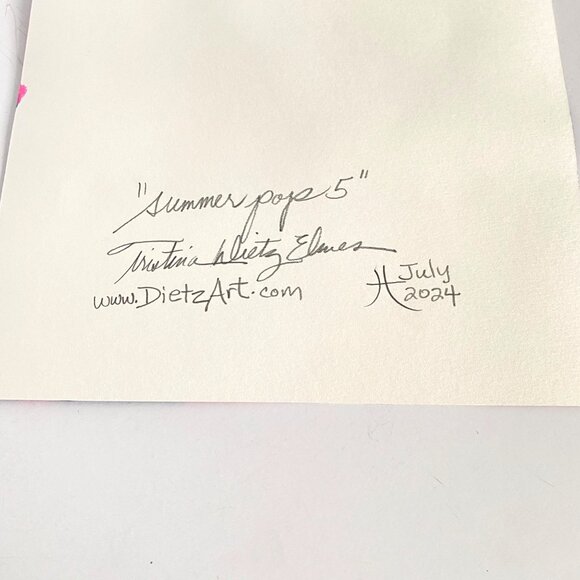 "summer pops 5"
Tristina Dietz Elmes
www.DietzArt.com
July
2024